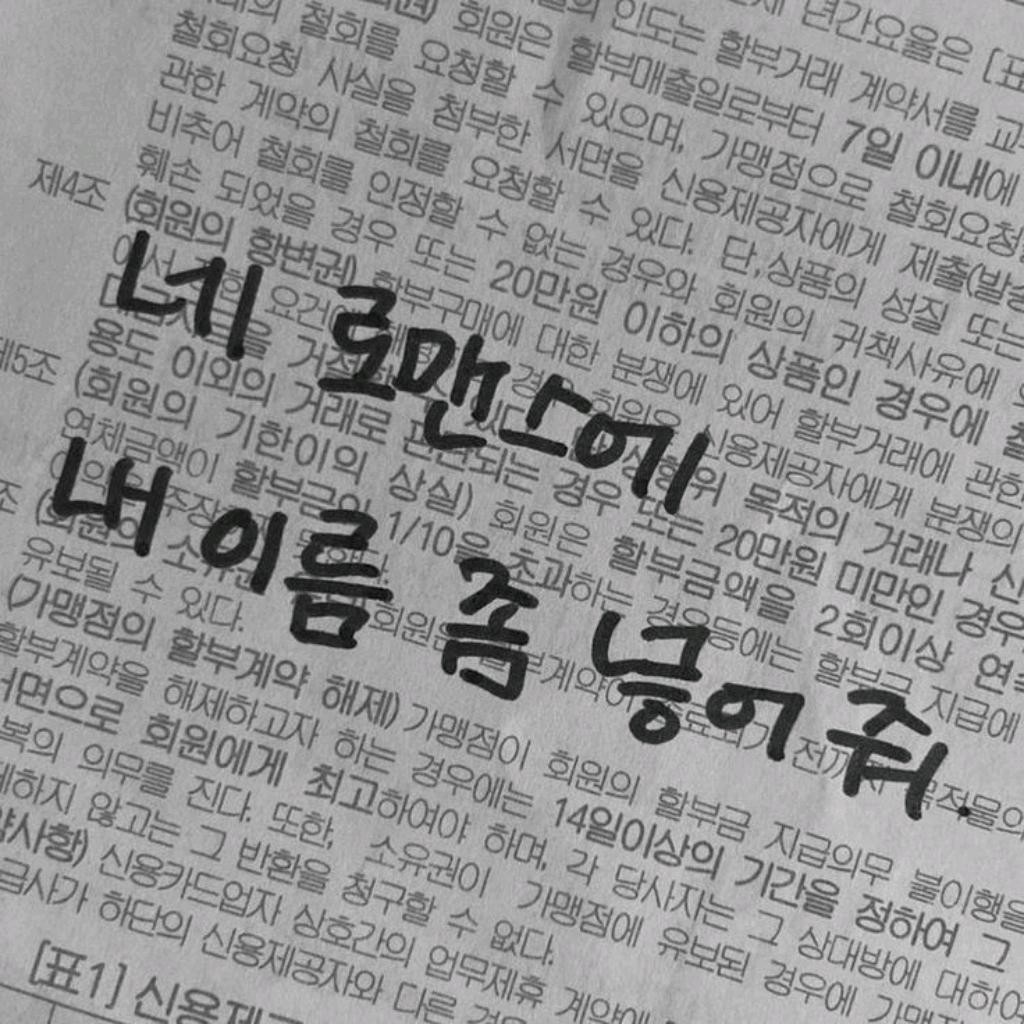 년간요율은 [표
회원은 할부거래 계약서를 교
철회를 요청할 수 있으며, 가맹점으로 철회요청
철회요청 사실을 첨부한 서면을 신용제공자에게 제출(발송
관한 계약의 철회를 요청할 수 있다. 단, 상품의 성질 또는
비추어 철회를 인정할 수 없는 경우와 회원의 귀책사유에
훼손 되었을 경우 또는 20만원 이하의 상품인 경우에
제4조 (회원의 항변권) 할부구매에 대한 분쟁에 있어 할부거래에 관한
네 로맨스에
신용제공자에게 분쟁의
용도 이외의 거래로 되는 경우 또는 20만원 미만인 경우
제5조 (회원의 기한이의 상실) 회원은 할부금액을 2회이상 연속
연체금액이 할부금의 1/10을 초과하는 경우 등에는 할부금 지급에
내 이름 좀 넣어 줘.
유보될 수 있다.
(가맹점의 할부계약 해제) 가맹점이 회원의 할부금 지급의무 불이행을
할부계약을 해제하고자 하는 경우에는 14일이상의 기간을 정하여 그
서면으로 회원에게 최고하여야 하며, 각 당사자는 그 상대방에 대하여
복의 의무를 진다. 또한, 소유권이 가맹점에 유보된 경우에 가맹점
제하지 않고는 그 반환을 청구할 수 없다.
약사항) 신용카드업자 상호간의 업무제휴 계약에
급사가 하단의 신용제공자와 다른 경우
[표1] 신용제공